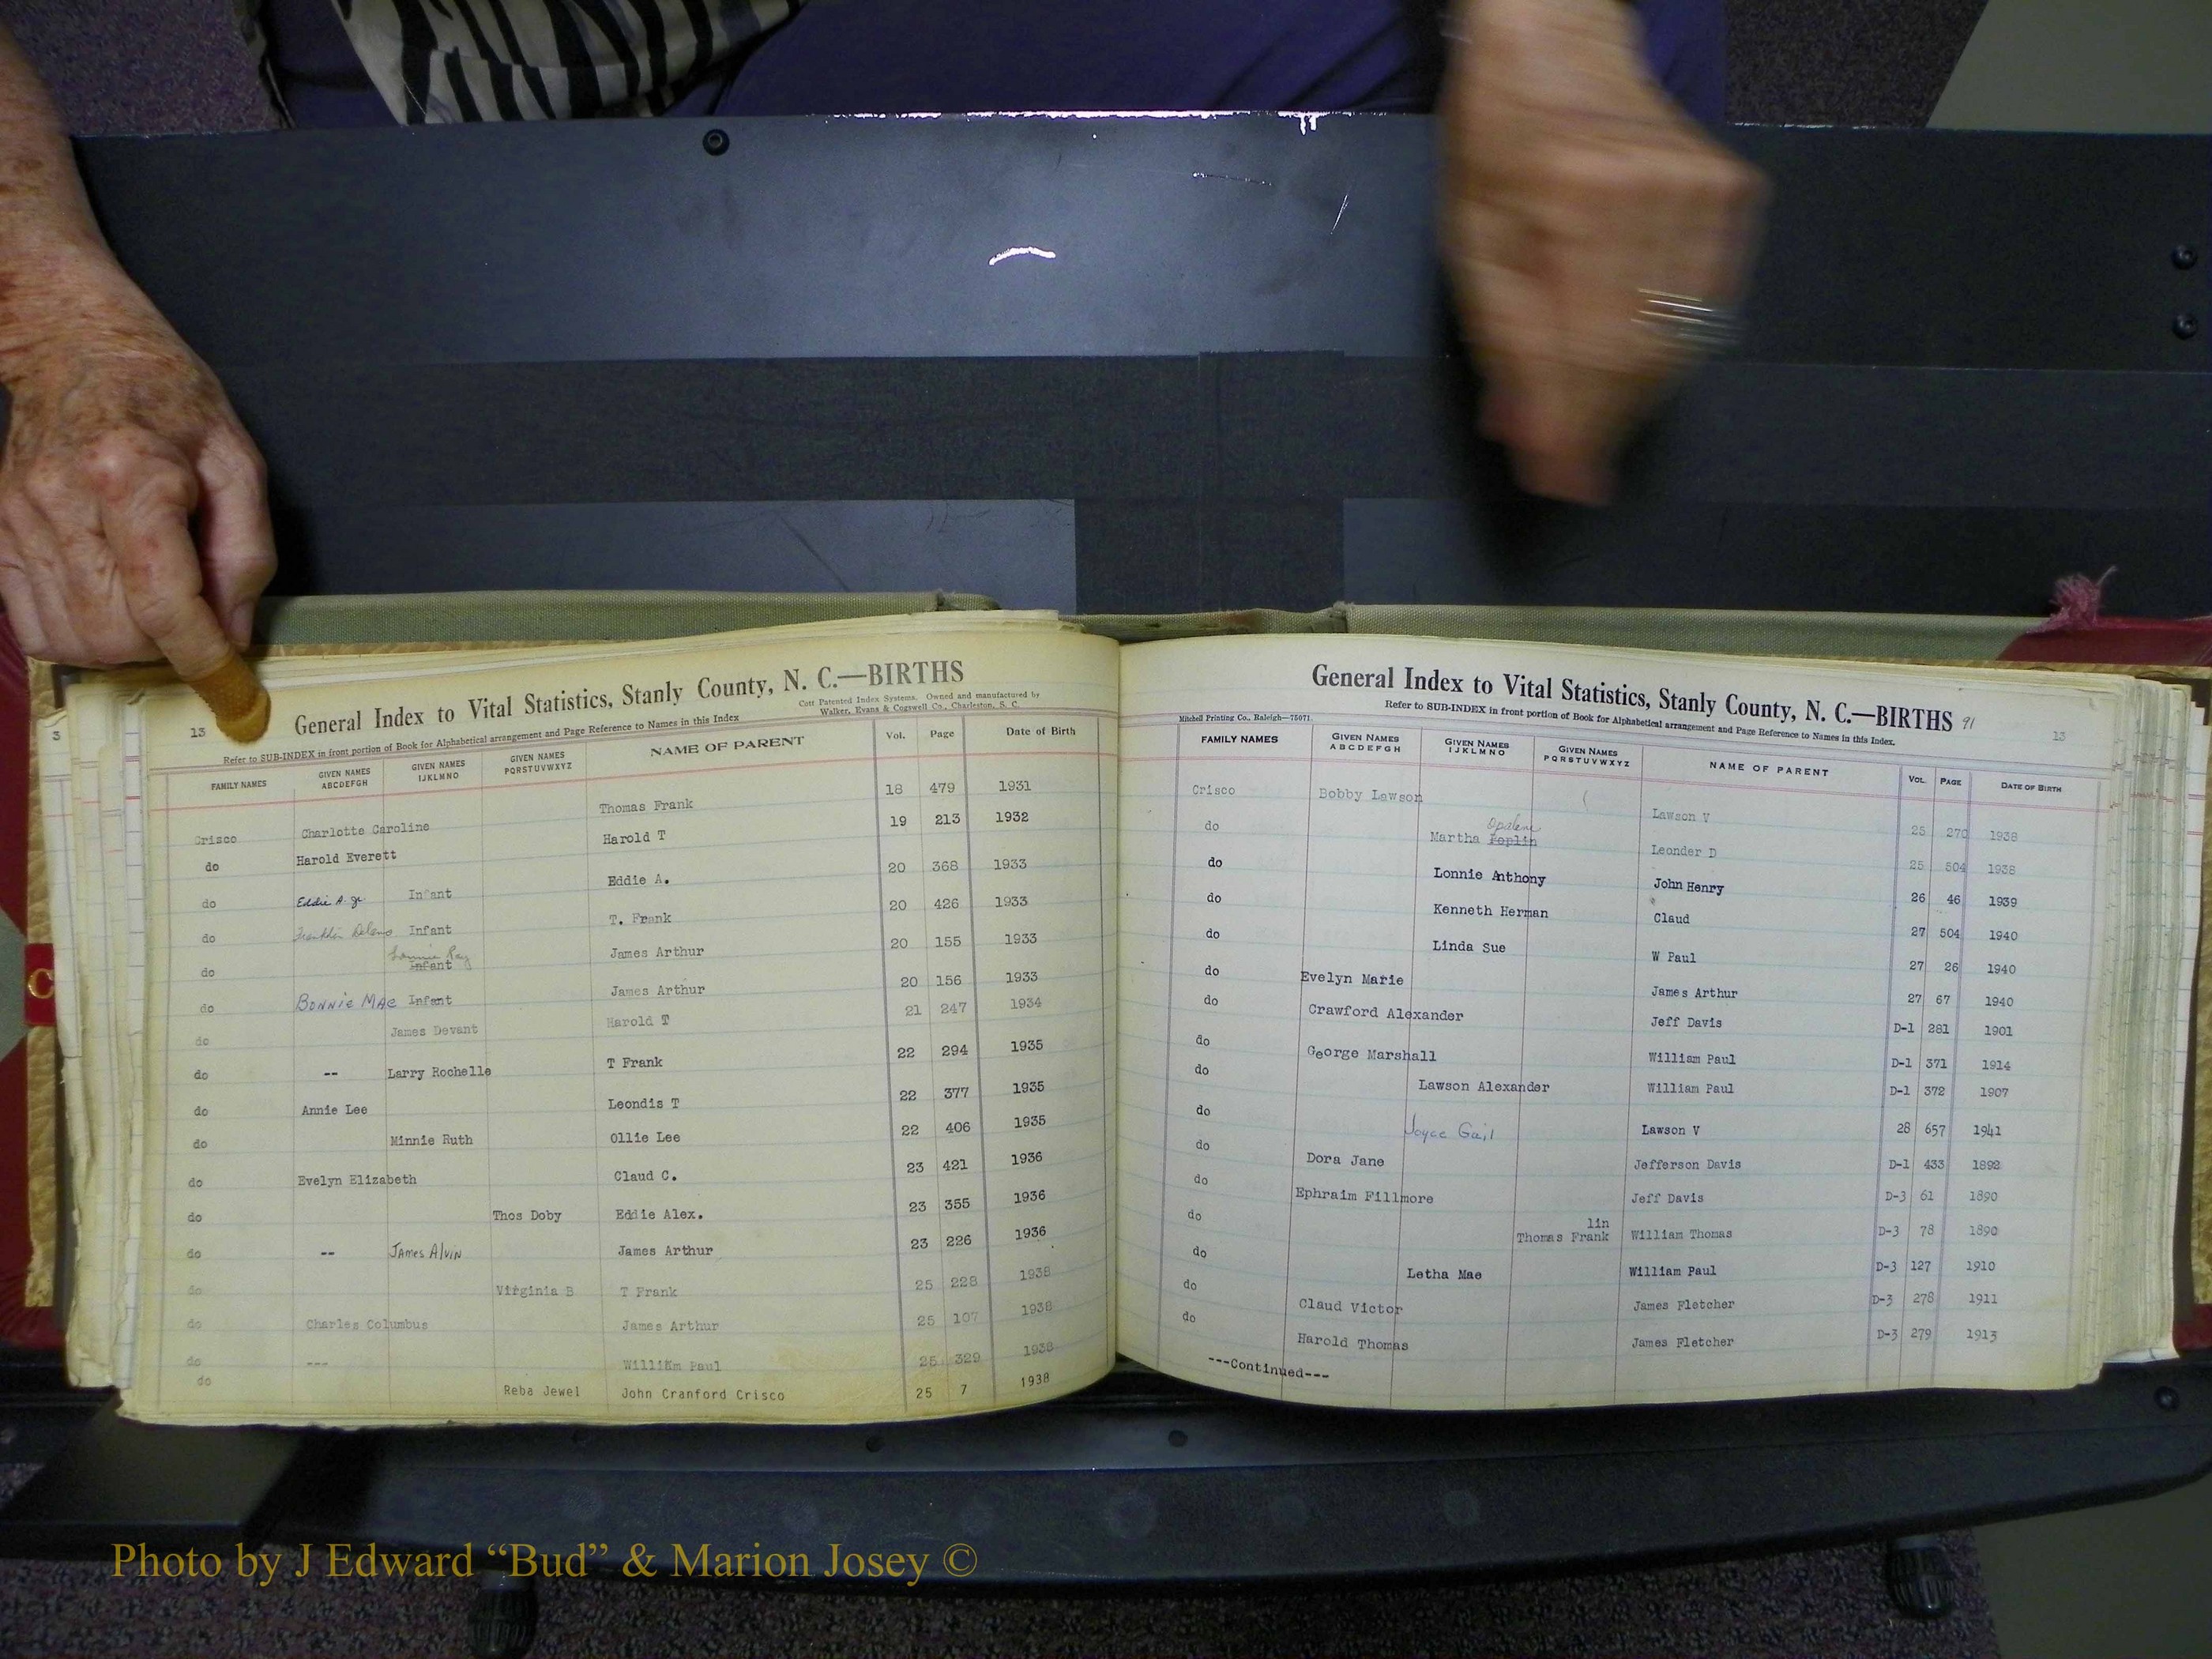 3
13
General Index to Vital Statistics, Stanly County, N. C.—BIRTHS
Cott Patented Index Systems. Owned and manufactured by
Walker, Evans & Cogswell Co., Charleston, S. C.
Refer to SUB-INDEX in front portion of Book for Alphabetical arrangement and Page Reference to Names in this Index
FAMILY NAMES GIVEN NAMES ABCDEFGH GIVEN NAMES IJKLMNO GIVEN NAMES PQRSTUVWXYZ NAME OF PARENT Vol. Page Date of Birth
Crisco Charlotte Caroline Thomas Frank 18 479 1931
do Harold Everett Harold T 19 213 1932
do Eddie A. Jr Infant Eddie A. 20 368 1933
do Franklin Delano Infant T. Frank 20 426 1933
do Lonnie Ray Infant James Arthur 20 155 1933
do Bonnie Mae Infant James Arthur 20 156 1933
do James Devant Harold T 21 247 1934
do -- Larry Rochelle T Frank 22 294 1935
do Annie Lee Leondis T 22 377 1935
do Minnie Ruth Ollie Lee 22 406 1935
do Evelyn Elizabeth Claud C. 23 421 1936
do Thos Doby Eddie Alex. 23 355 1936
do -- James Alvin James Arthur 23 226 1936
do Virginia B T Frank 25 228 1938
do Charles Columbus James Arthur 25 107 1938
do --- William Paul 25 329 1938
do Reba Jewel John Cranford Crisco 25 7 1938
General Index to Vital Statistics, Stanly County, N. C.—BIRTHS 91
Refer to SUB-INDEX in front portion of Book for Alphabetical arrangement and Page Reference to Names in this Index.
Mitchell Printing Co., Raleigh—75071
13
FAMILY NAMES GIVEN NAMES ABCDEFGH GIVEN NAMES IJKLMNO GIVEN NAMES PQRSTUVWXYZ NAME OF PARENT VOL. PAGE DATE OF BIRTH
Crisco Bobby Lawson Lawson V 25 270 1938
Opalene
do Martha Poplin Leonder D 25 504 1938
do Lonnie Anthony John Henry 26 46 1939
do Kenneth Herman Claud 27 504 1940
do Linda Sue W Paul 27 26 1940
do Evelyn Marie James Arthur 27 67 1940
do Crawford Alexander Jeff Davis D-1 281 1901
do George Marshall William Paul D-1 371 1914
do Lawson Alexander William Paul D-1 372 1907
do Joyce Gail Lawson V 28 657 1941
do Dora Jane Jefferson Davis D-1 433 1892
do Ephraim Fillmore Jeff Davis D-3 61 1890
lin
do Thomas Frank William Thomas D-3 78 1890
do Letha Mae William Paul D-3 127 1910
do Claud Victor James Fletcher D-3 278 1911
do Harold Thomas James Fletcher D-3 279 1913
---Continued---
C
Photo by J Edward “Bud” & Marion Josey ©